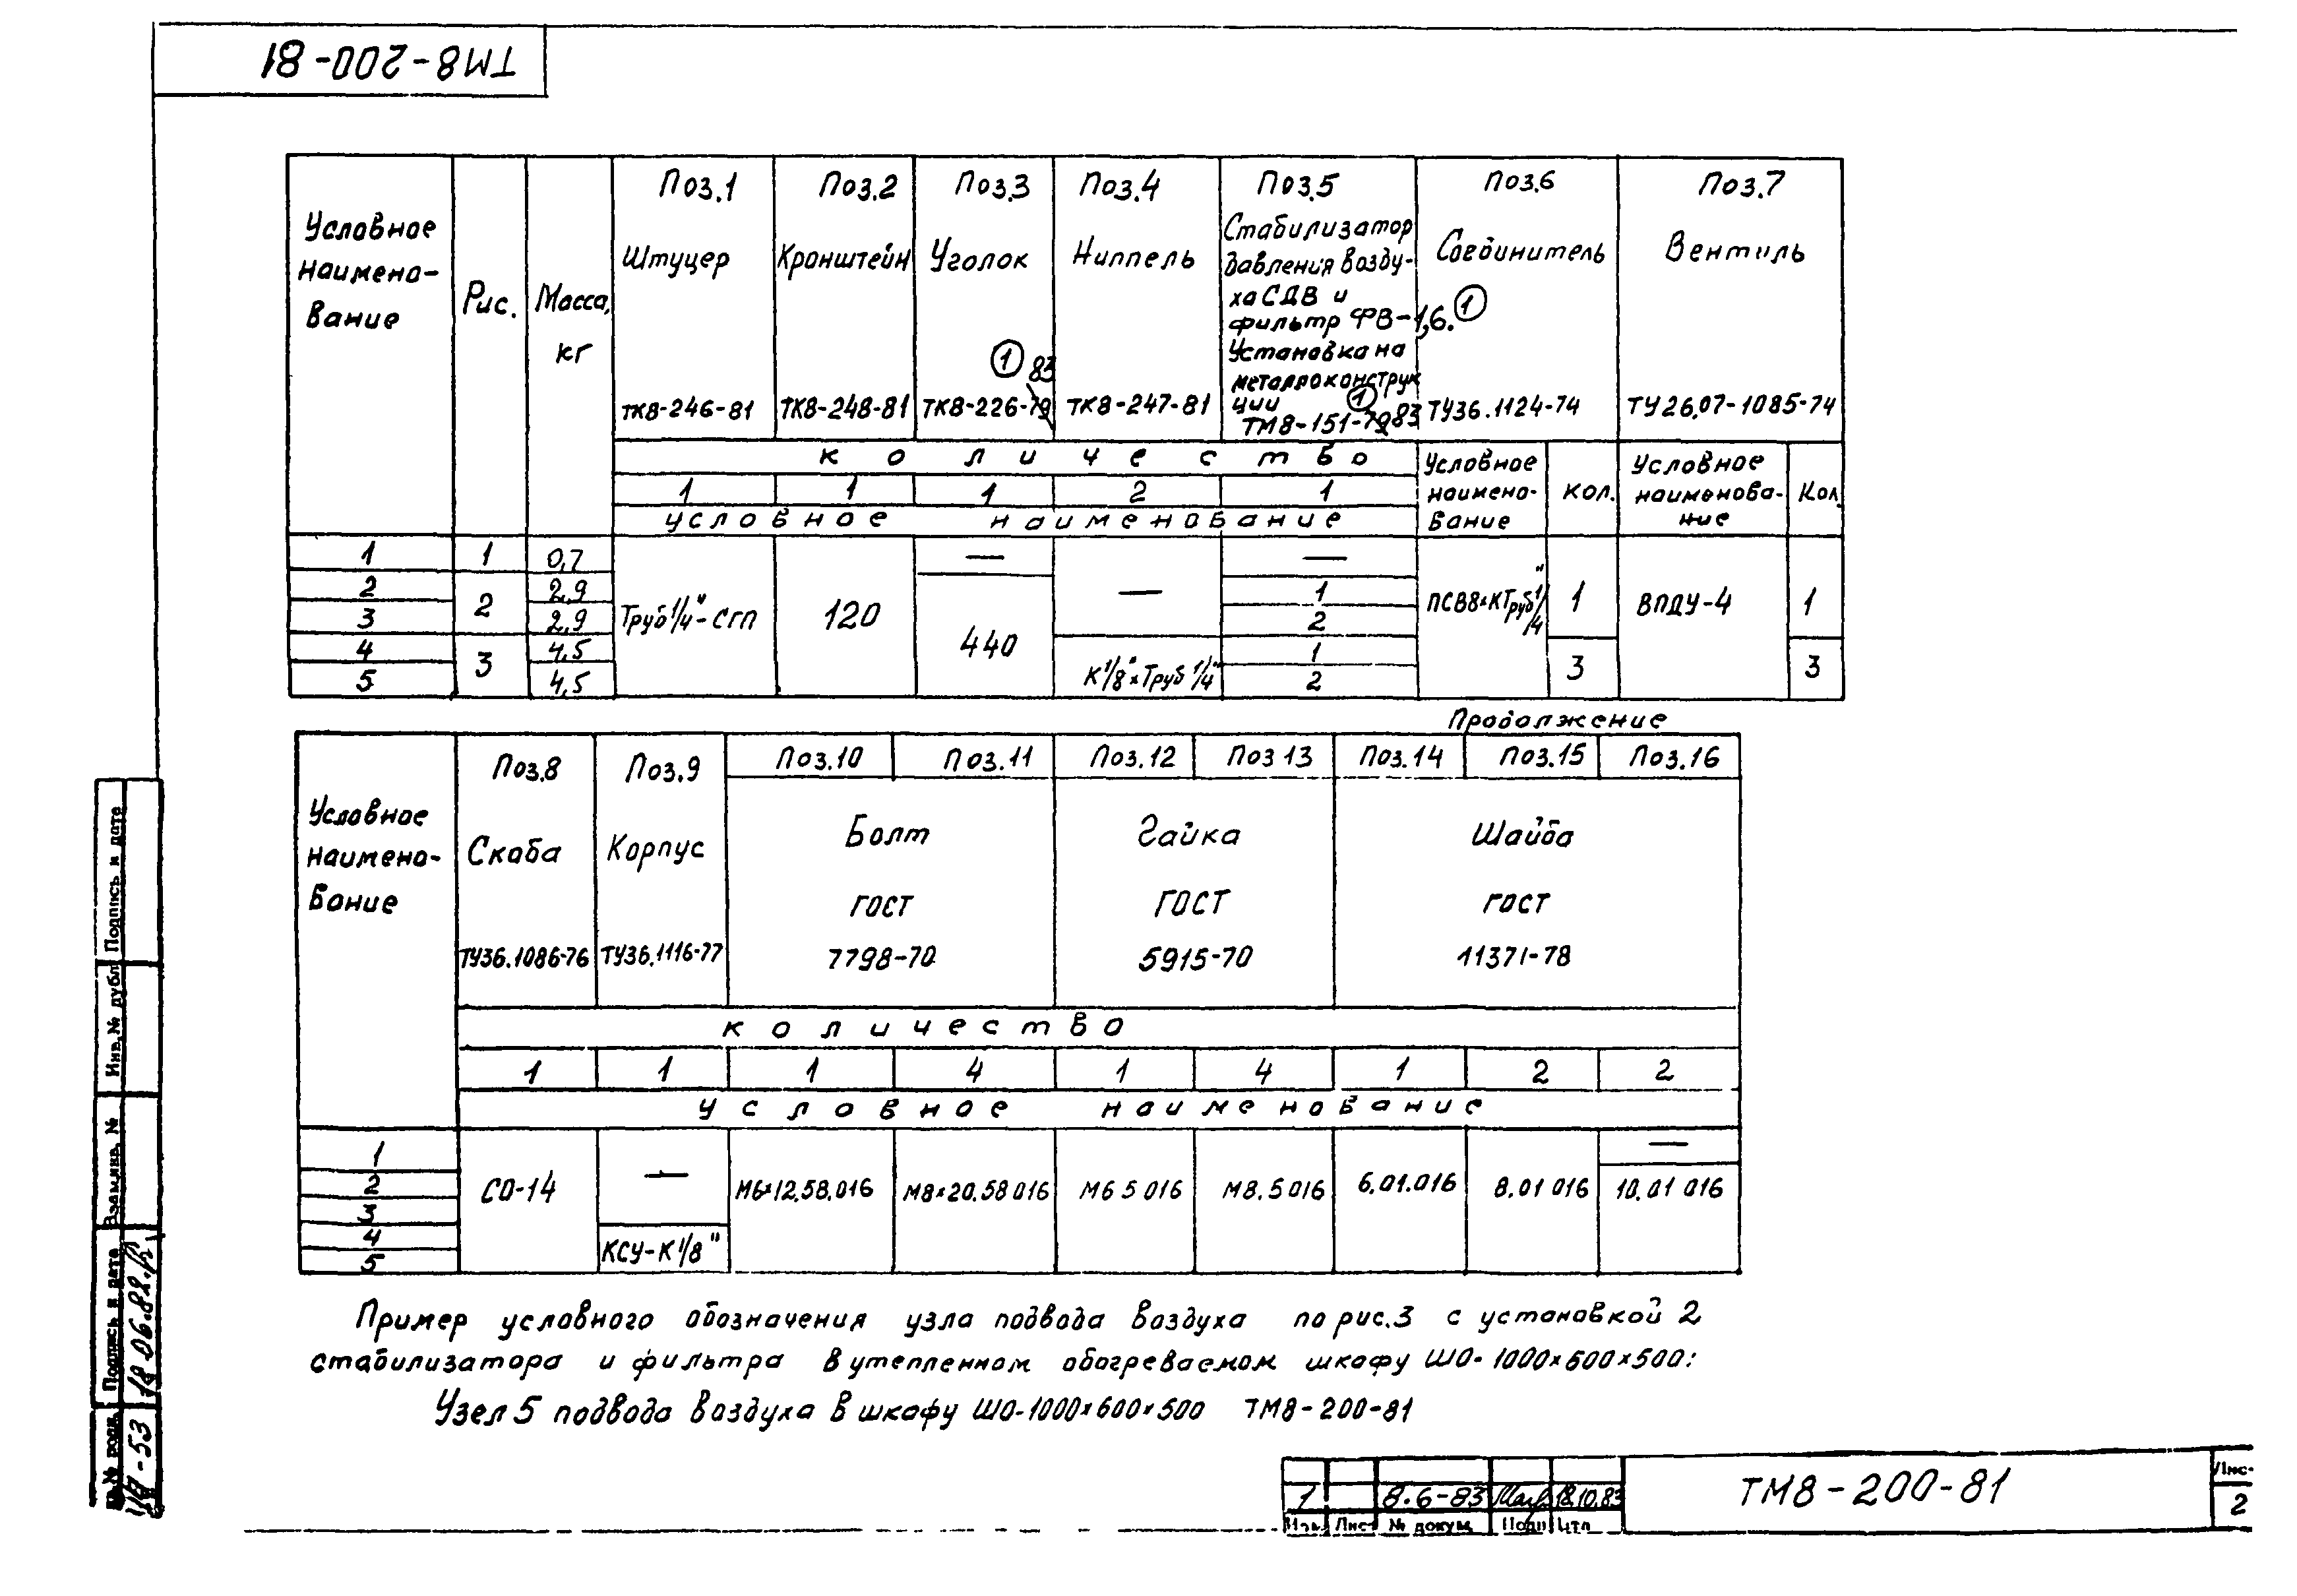 ТМ8-200-81
Условное наимено- вание
Рис.
Масса, кг
Поз.1 Штуцер ТК8-246-81
Поз.2 Кронштейн ТК8-248-81
Поз.3 Уголок ① 83 ТК8-226-79
Поз.4 Ниппель ТК8-247-81
Поз.5
Стабилизатор
давления возду-
ха СДВ и
фильтр ФВ-1,6. ①
Установка на
металлоконструк
ции ①
ТМ8-151-79 83
Поз.6 Соединитель ТУ36.1124-74
Поз.7 Вентиль ТУ26.07-1085-74
количество
1 1 1 2 1
условное наименование
Условное наимено- вание
кол.
Условное наименова- ние
Кол.
1 1 0,7 — —
2 2 2,9 1
3 2,9 2
Труб 1/4"-СГП 120 440 — ПСВ8×КТруб 1/4" 1 ВПДУ-4 1
4 3 4,5 1
5 4,5 К 1/8"×Труб 1/4" 2 3 3
Продолжение
Условное наимено- вание
Поз.8 Скоба ТУ36.1086-76
Поз.9 Корпус ТУ36.1116-77
Поз.10 Поз.11
Болт
ГОСТ
7798-70
Поз.12 Поз 13
Гайка
ГОСТ
5915-70
Поз.14 Поз.15 Поз.16
Шайба
ГОСТ
11371-78
количество
1 1 1 4 1 4 1 2 2
условное наименование
1 —
2 СО-14 — М6×12.58.016 М8×20.58 016 М6 5 016 М8.5 016 6.01.016 8.01 016 10.01 016
3
4 КСУ-К 1/8"
5
Пример условного обозначения узла подвода воздуха по рис.3 с установкой 2
стабилизатора и фильтра в утепленном обогреваемом шкафу ШО-1000×600×500:
Узел 5 подвода воздуха в шкафу ШО-1000×600×500 ТМ8-200-81
Подпись и дата
Инв.№ дубл
Взам.инв. №
Подпись и дата 18 06.82.
№ подл. -53
1 8.6-83 18.10.83
Изм. Лист № докум. Подп
ТМ8-200-81
Лис-
2